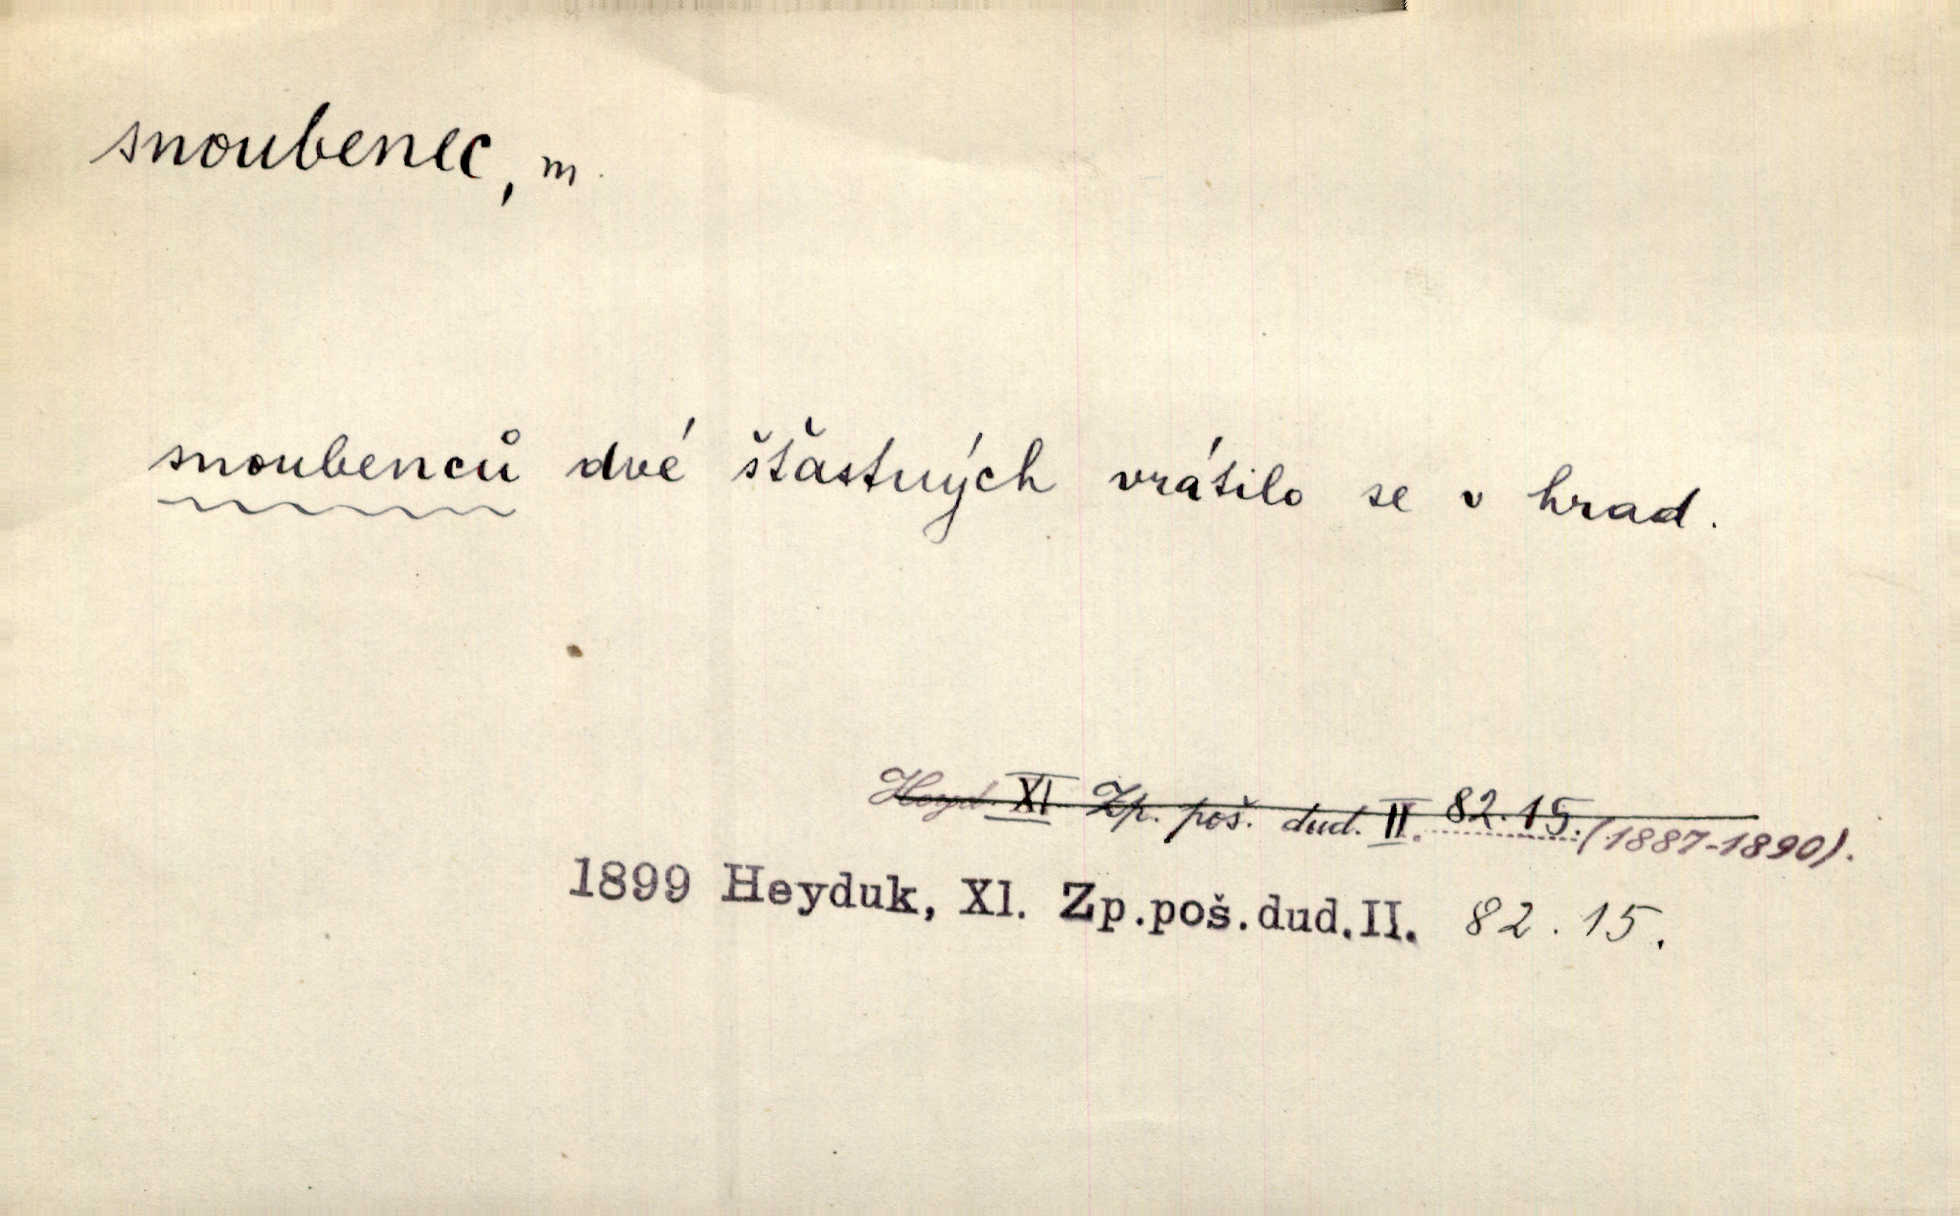 snoubenec, m.
snoubenců dvé šťastných vrátilo se v hrad.
Heyd. XI Zp. poš. dud. II. 82.15. (1887-1890).
1899 Heyduk, Xl. Zp.poš.dud.II. 82.15.